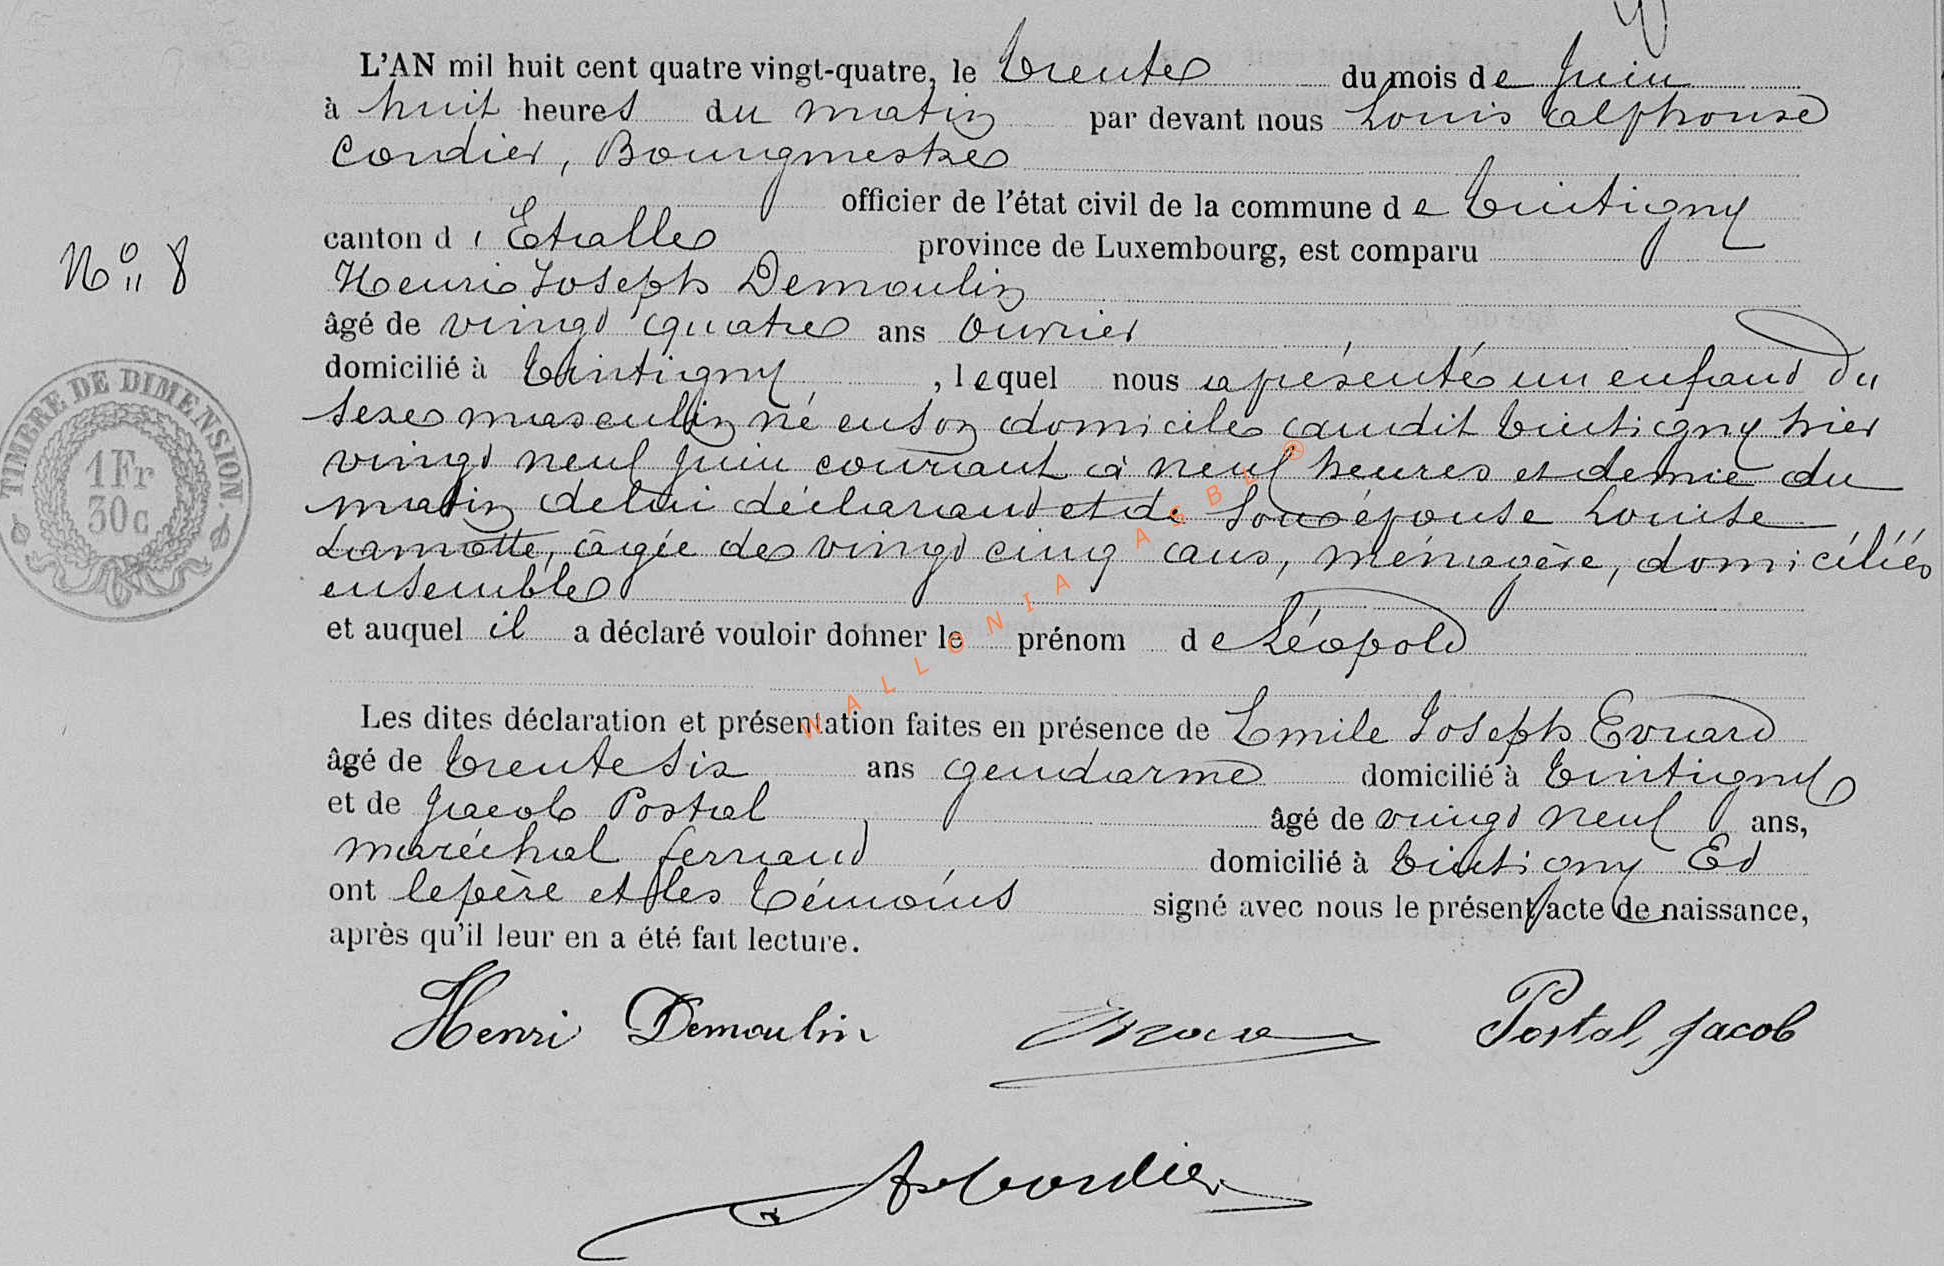 L'AN mil huit cent quatre vingt-quatre, le trente du mois de Juin
à huit heures du matin par devant nous Louis Alphonse
Cordier, Bourgmestre
officier de l'état civil de la commune de Tintigny
canton d'Etalle province de Luxembourg, est comparu
N° 8
Henri Joseph Demoulin
âgé de vingt quatre ans ouvrier
domicilié à Tintigny, lequel nous a présenté un enfant du
sexe masculin né en son domicile audit Tintigny hier
vingt neuf Juin courant à neuf heures et demie du
matin de lui déclarant et de son épouse Louise
Lamotte, âgée de vingt cinq ans, ménagère, domiciliés
ensemble
et auquel il a déclaré vouloir donner le prénom de Léopold
Les dites déclaration et présentation faites en présence de Emile Joseph Evrard
âgé de trente six ans gendarme domicilié à Tintigny
et de Jacob Postal âgé de vingt neuf ans,
maréchal ferrand domicilié à Tintigny Et
ont le père et les témoins signé avec nous le présent acte de naissance,
après qu'il leur en a été fait lecture.
TIMBRE DE DIMENSION.
1 Fr
30 c
WALLONIA ASBL ®
Henri Demoulin
Postal Jacob
Cordier